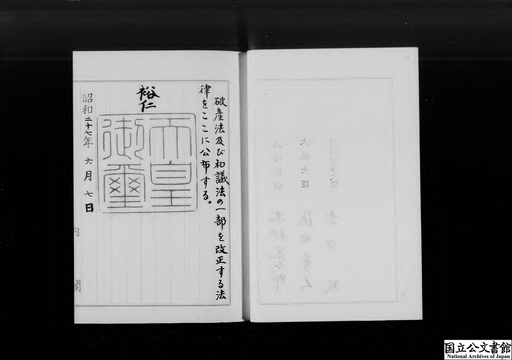 破産法及び和議法の一部を改正する法
律をここに公布する。
裕仁
天皇
御璽
昭和二十七年六月七日
内閣
国立公文書館
National Archives of Japan